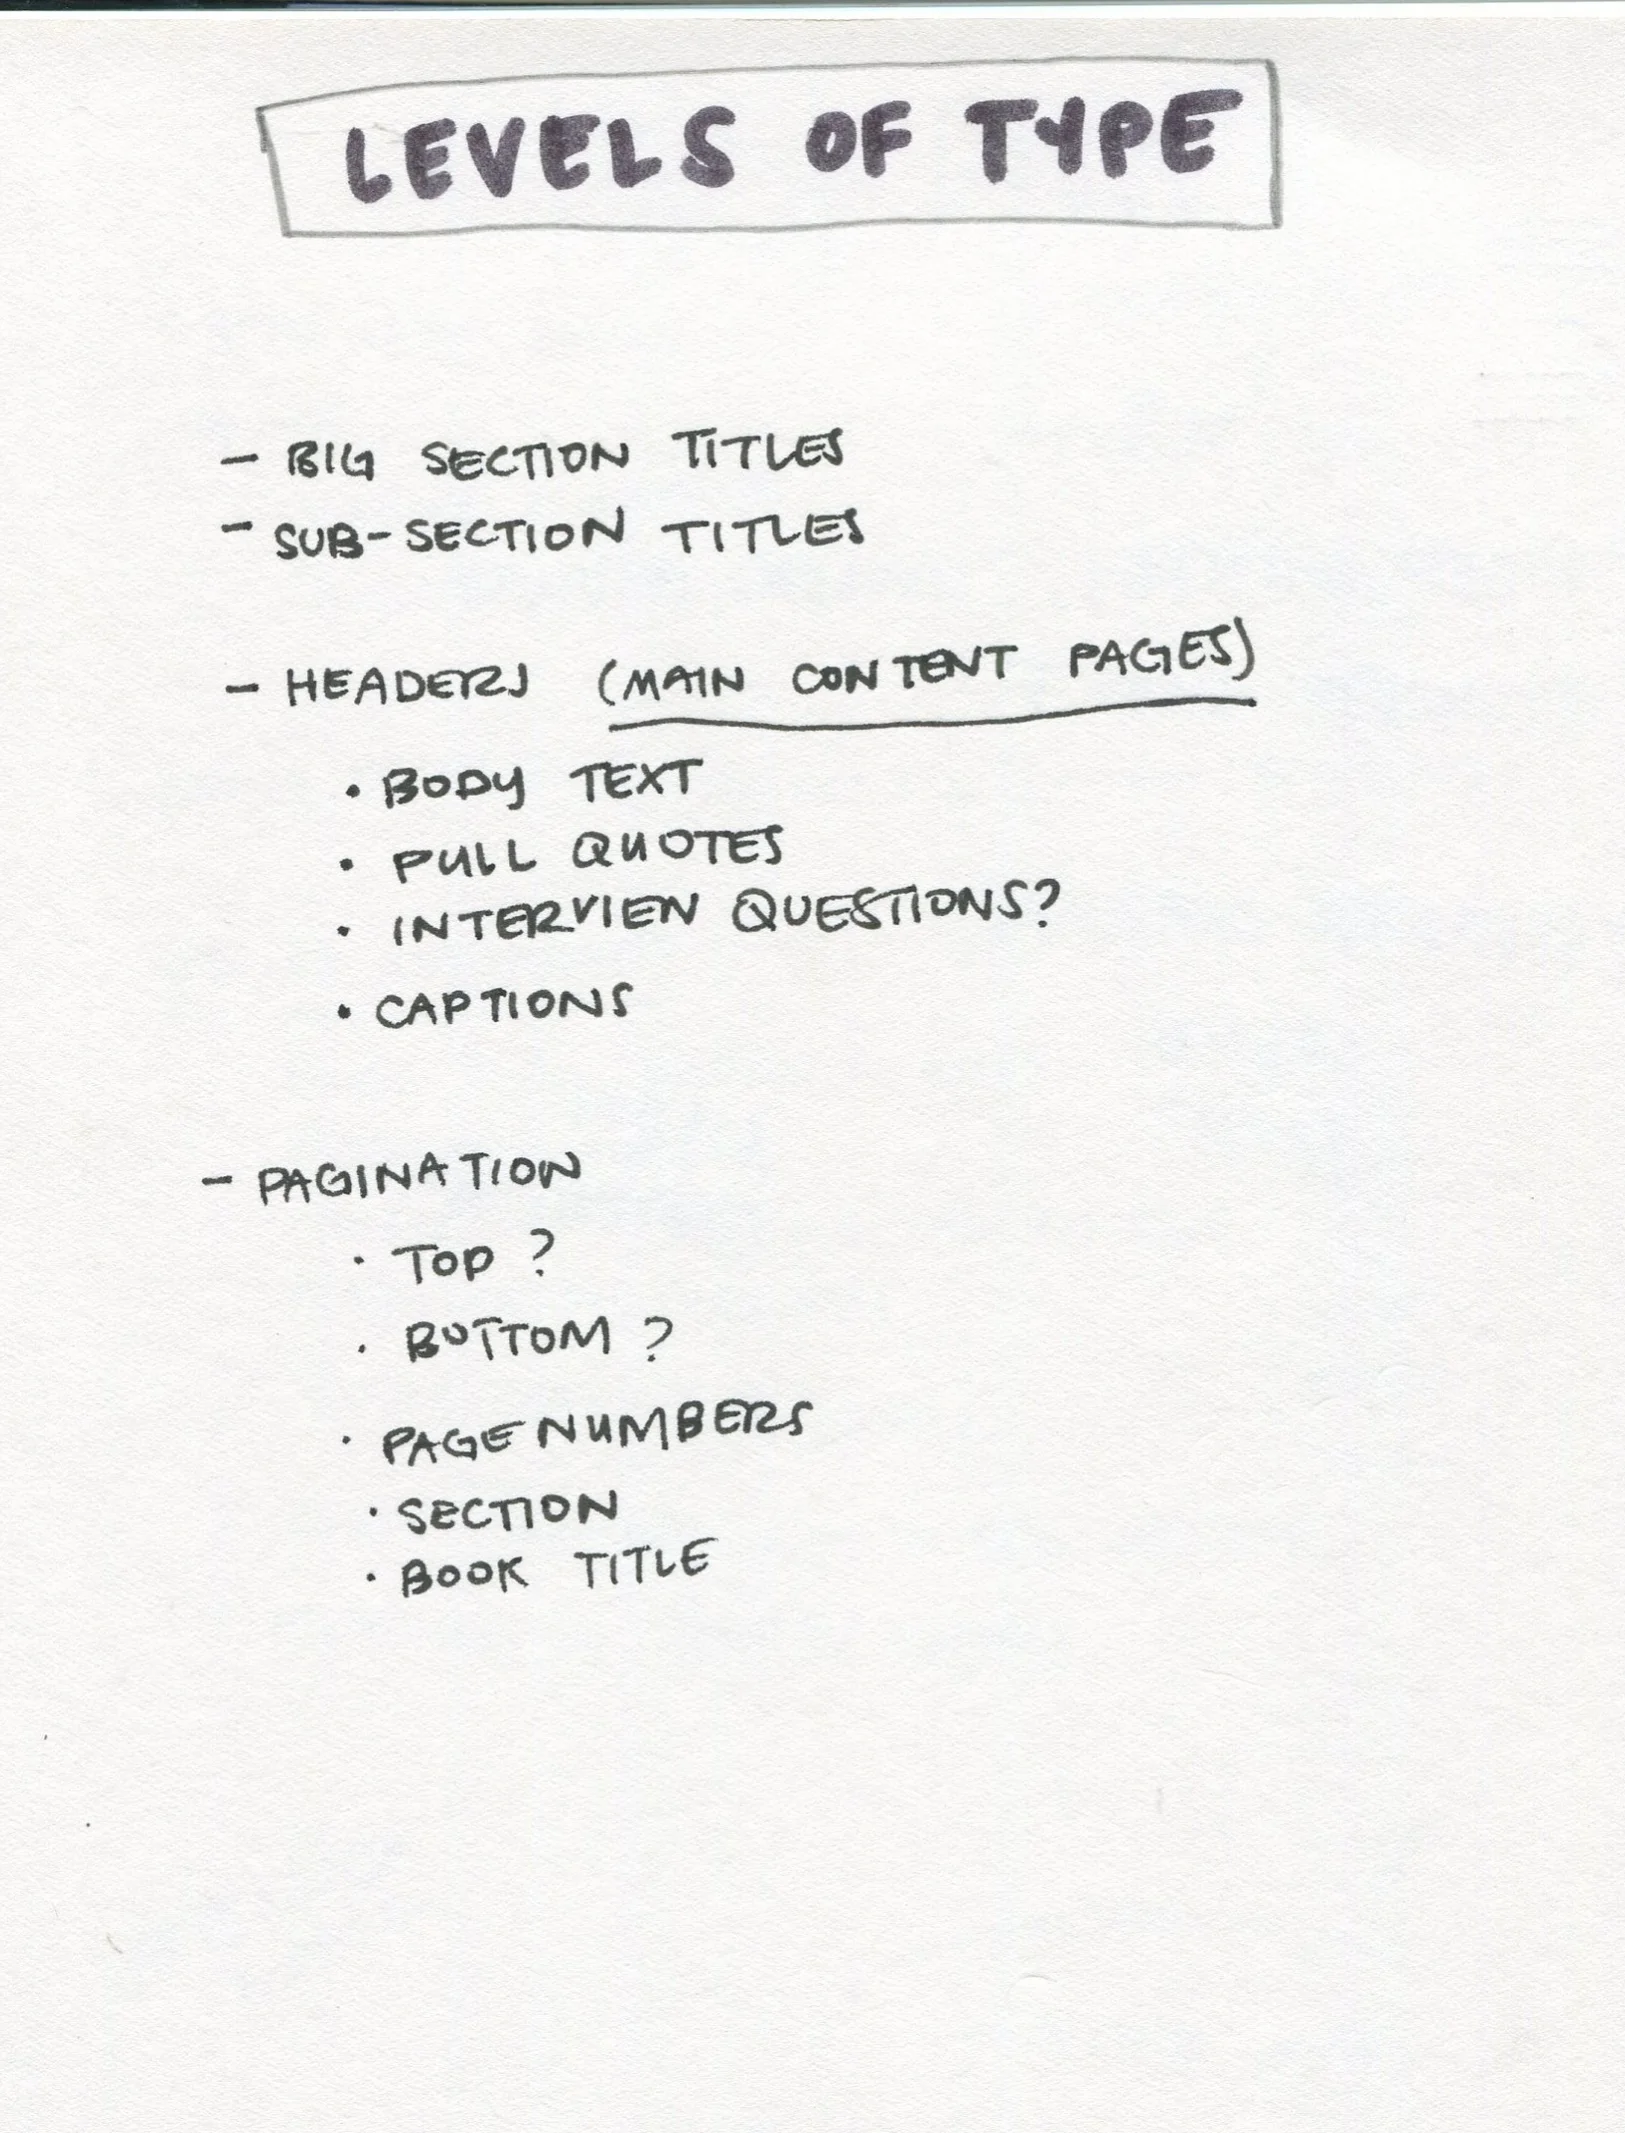 LEVELS OF TYPE
- BIG SECTION TITLES
- SUB-SECTION TITLES
- HEADERS (MAIN CONTENT PAGES)
• BODY TEXT
• PULL QUOTES
• INTERVIEW QUESTIONS?
• CAPTIONS
- PAGINATION
• TOP ?
• BOTTOM ?
• PAGE NUMBERS
• SECTION
• BOOK TITLE